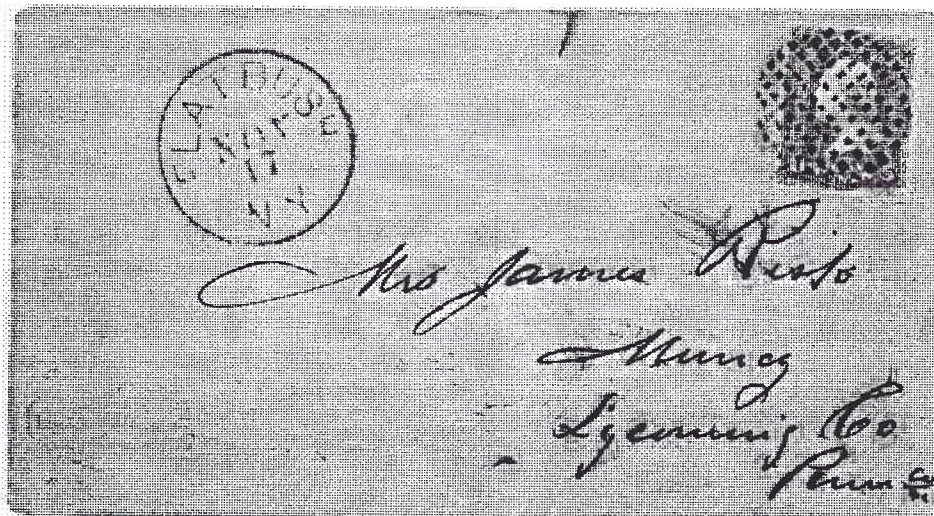 FLATBUSH
NOV
17
N Y
Mrs James
Muncy
Lycoming Co
Penn